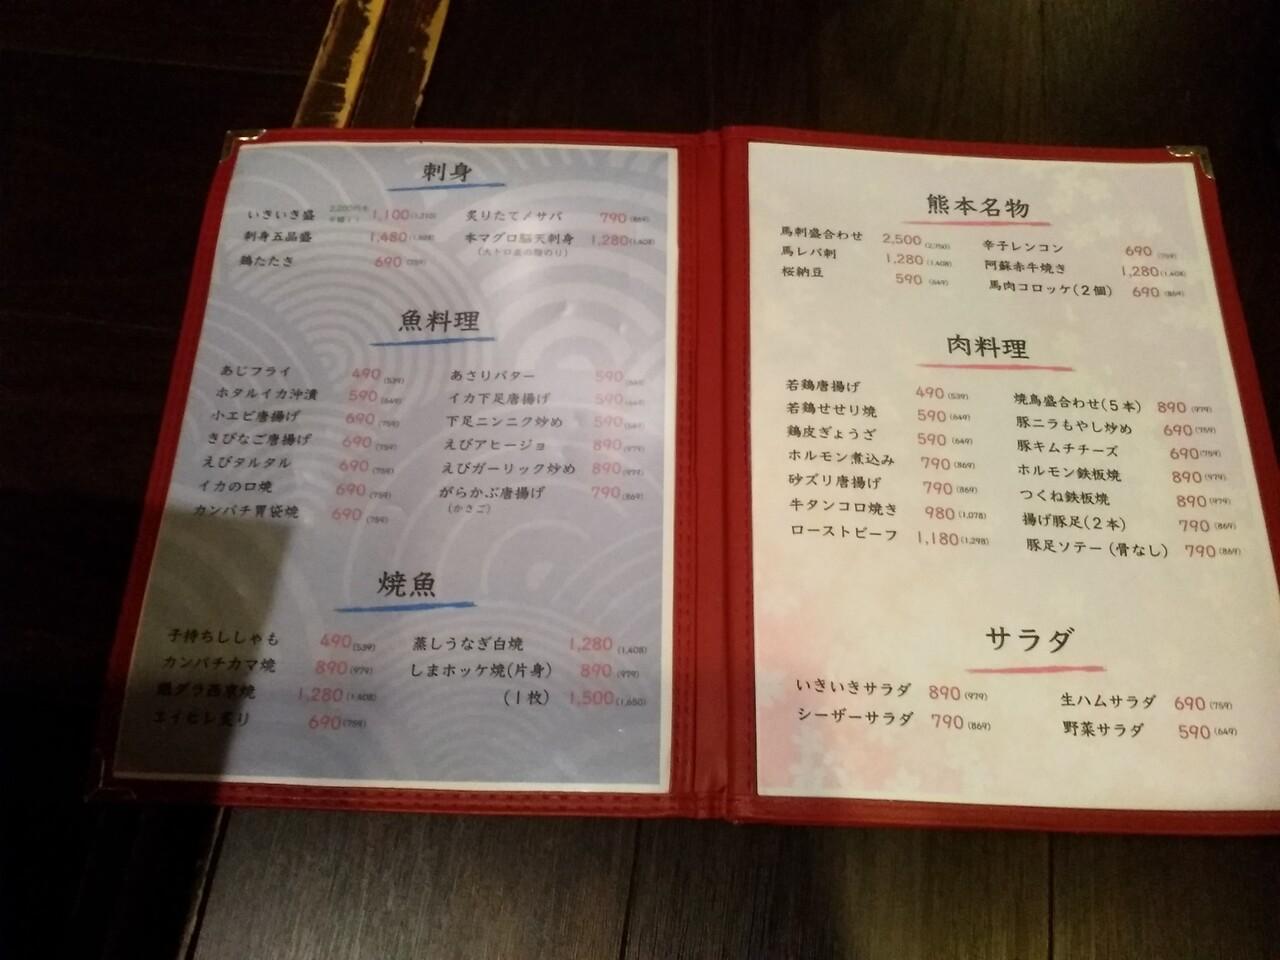 刺身
いきいき盛 1,100(1,210)
刺身五品盛 1,480(1,628)
鶏たたき 690(759)
炙りたて〆サバ 790(869)
本マグロ脳天刺身 1,280(1,408)
魚料理
あじフライ 490(539)
ホタルイカ沖漬 590(649)
小エビ唐揚げ 690(759)
きびなご唐揚げ 690(759)
えびタルタル 690(759)
イカの口焼 690(759)
カンパチ胃袋焼 690(759)
あさりバター 590(649)
イカ下足唐揚げ 590(649)
下足ニンニク炒め 590(649)
えびアヒージョ 890(979)
えびガーリック炒め 890(979)
がらかぶ唐揚げ 790(869)
(かさご)
焼魚
子持ちししゃも 490(539)
カンパチカマ焼 890(979)
銀ダラ西京焼 1,280(1,408)
エイヒレ炙り 690(759)
蒸しうなぎ白焼 1,280(1,408)
しまホッケ焼(片身) 890(979)
(1枚) 1,500(1,650)
熊本名物
馬刺盛合わせ 2,500(2,750)
馬レバ刺 1,280(1,408)
桜納豆 590(649)
辛子レンコン 690(759)
阿蘇赤牛焼き 1,280(1,408)
馬肉コロッケ(2個) 690(869)
肉料理
若鶏唐揚げ 490(539)
若鶏せせり焼 590(649)
鶏皮ぎょうざ 590(649)
ホルモン煮込み 790(869)
砂ズリ唐揚げ 790(869)
牛タンコロ焼き 980(1,078)
ローストビーフ 1,180(1,298)
焼鳥盛合わせ(5本) 890(979)
豚ニラもやし炒め 690(759)
豚キムチチーズ 690(759)
ホルモン鉄板焼 890(979)
つくね鉄板焼 890(979)
揚げ豚足(2本) 790(869)
豚足ソテー(骨なし) 790(869)
サラダ
いきいきサラダ 890(979)
シーザーサラダ 790(869)
生ハムサラダ 690(759)
野菜サラダ 590(649)